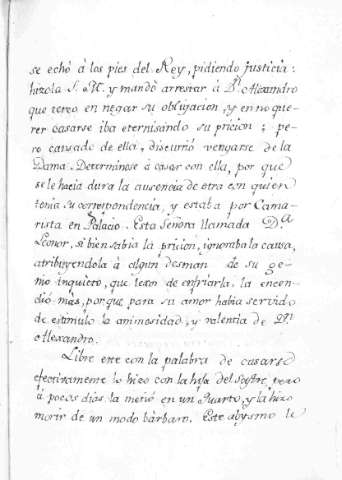 se echó á los pies del Rey, pidiendo justicia:
hizola S. M. y mandó arrestar á D.n Alexandro
que terco en negar su obligacion, y en no que-
rer casarse iba eternisando su pricion; pe-
ro cansado de ella, discurrió vengarse de la
Dama. Determinose á casar con ella, por que
se le hacia dura la ausencia de otra con quien
tenia su correspondencia, y estaba por Cama-
rista en Palacio. Esta Señora llamada D.a
Leonor, si bien sabia la pricion, ignoraba la causa,
atribuyendola á algun desman de su ge-
nio inquieto, que lexos de enfriarla, la encen-
dió más, porque para su amor habia servido
de estimulo la animosidad, y valentia de D.n
Alexandro.
Libre este con la palabra de casarse
efectivamente lo hizo con la hija del Sastre, pero
á pocos dias la metió en un Quarto, y la hizo
morir de un modo bárbaro. Este abysmo le